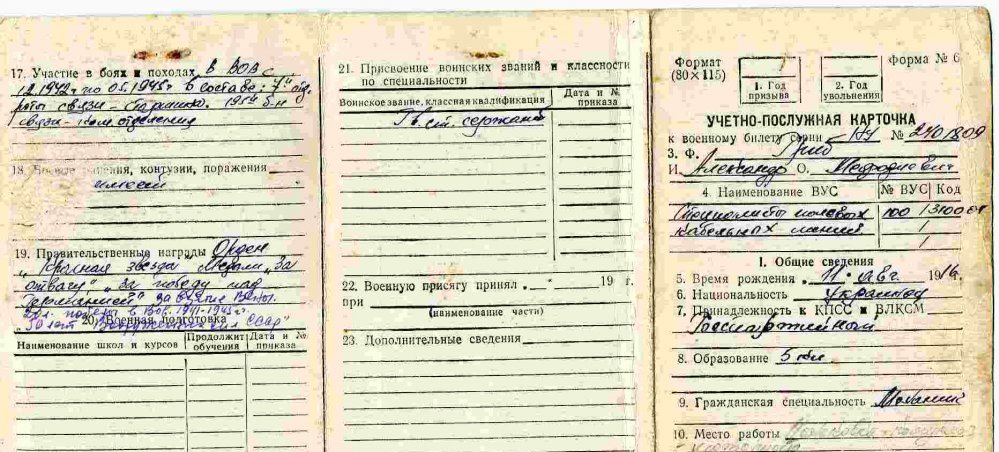 17. Участие в боях и походах в ВОВ с
12.1942г по 05.1945г в составе:
роты связи – 195й
связи – ком. отделения
18. ранения, контузии, поражения
имеет
19. Правительственные награды Орден
„Красная звезда" Медали „За
отвагу" „За победу над
Германией" За взятие
20 л. победы в Вов. 1941-1945г.
50 лет Вооруженных сил СССР"
20. Военная подготовка
Наименование школ и курсов
Продолжит. обучения
Дата и № приказа
21. Присвоение воинских званий и классности
по специальности
Воинское звание, классная квалификация
Дата и №
приказа
Гв. ст. сержант
22. Военную присягу принял „ " 19 г.
при
(наименование части)
23. Дополнительные сведения
Формат
(80×115)
Форма № 6
1. Год
призыва
2. Год
увольнения
УЧЕТНО-ПОСЛУЖНАЯ КАРТОЧКА
к военному билету серии НУ №
3. Ф. Гриб
И. Александр О.
4. Наименование ВУС
№ ВУС
Код
Специалисты полевых 100
кабельных линий
I. Общие сведения
5. Время рождения 11 авг. 1916
6. Национальность Украинец
7. Принадлежность к КПСС и ВЛКСМ
Беспартийный
8. Образование 5 кл
9. Гражданская специальность
10. Место работы